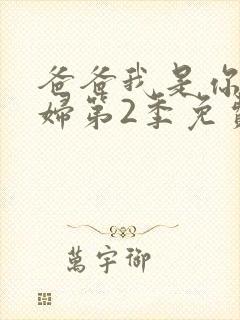 爸爸我是你
婦第2季免費
萬宇御